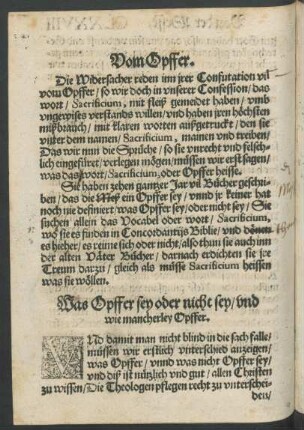 Vom Opffer.
Die Widersacher reden inn jrer Confutation vil
vom Opffer / so wir doch in vnserer Confession / das
wort / Sacrificium, mit fleiß gemeidet haben / vmb
vngewises verstands willen / vnd haben jren höchsten
mißbrauch / mit klaren worten außgetruckt / den sie
vnter dem namen / Sacrificium, mainen vnd treiben /
Das wir nun die Sprüche / so sie vnrecht vnd felsch-
lich eingefüret / verlegen mögen / müssen wir erst sagen /
was das wort / Sacrificium, oder Opffer heisse.
Sie haben zehen gantzer Jar vil Bücher geschri-
ben / das die Meß ein Opffer sey / vnnd jr keiner hat
noch nie definirt / was Opffer sey / oder nicht sey / Sie
suchen allein das Vocabel oder wort / Sacrificium,
wo sie es finden in Concordantijs Biblie / vnd dönen
es hieher / es reime sich oder nicht / also thun sie auch inn
der alten Väter Bücher / darnach erdichten sie jre
Treum darzu / gleich als müsse Sacrificium heissen
was sie wöllen.
Was Opffer sey oder nicht sey / vnd
wie mancherley Opffer.
VNd damit man nicht blind in die sach falle /
müssen wir erstlich vnterschied anzeigen /
was Opffer / vnnd was nicht Opffer sey /
vnd diß ist nützlich vnd gut / allen Christen
zu wissen / Die Theologen pflegen recht zu vnterschei-
den /